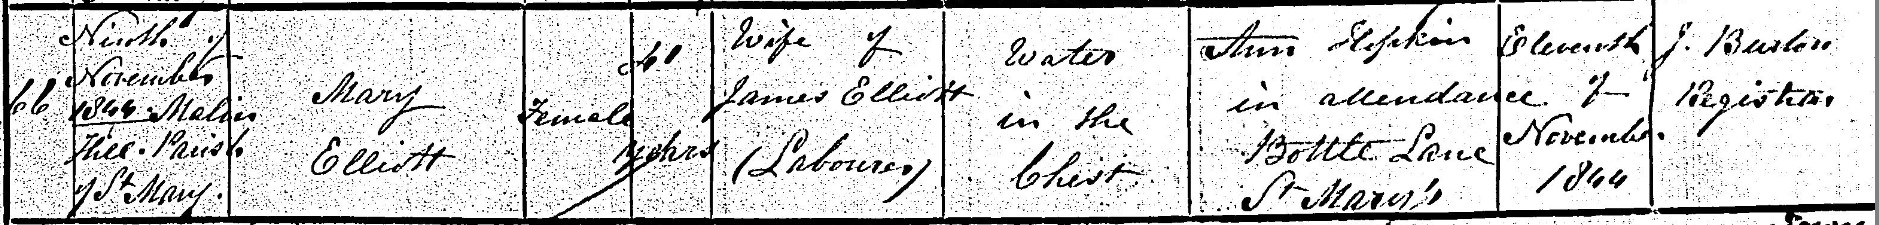 66
Ninth of
November
1844 Malin
Hill Parish
of St Mary.
Mary
Elliott
Female
41
years
Wife of
James Elliott
(Labourer)
Water
in the
Chest
Ann Hopkin
in attendance
Bottle Lane
St Mary's
Eleventh
of
November
1844
J. Buxton
Registrar